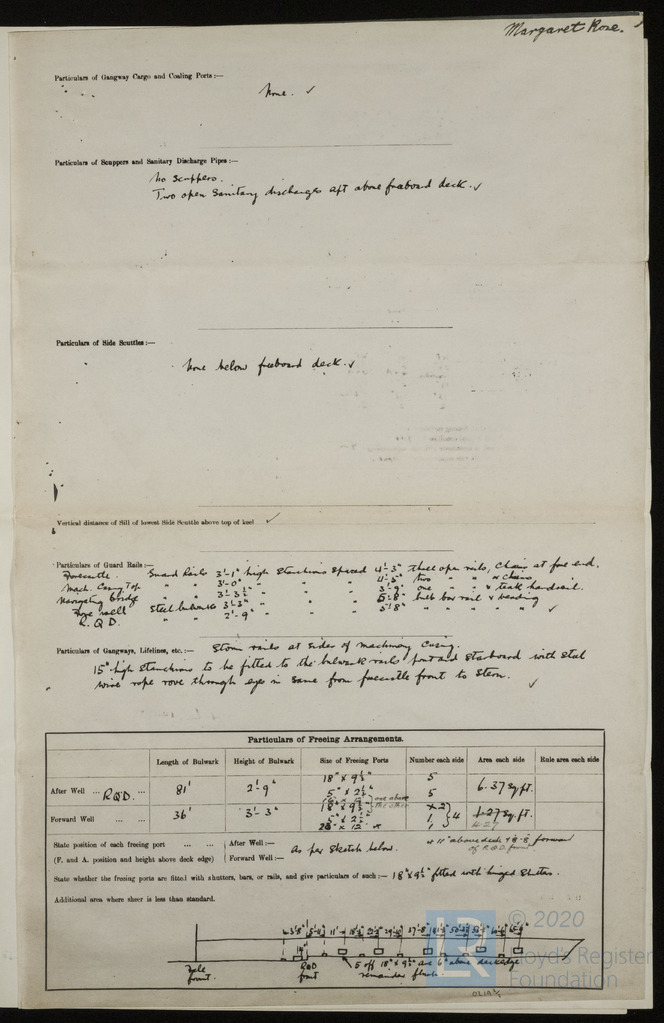 Margaret Rose.
Particulars of Gangway Cargo and Coaling Ports :—
None. ✓
Particulars of Scuppers and Sanitary Discharge Pipes :—
No scuppers.
Two open Sanitary discharges aft above freeboard deck. ✓
Particulars of Side Scuttles :—
None below freeboard deck. ✓
Vertical distance of Sill of lowest Side Scuttle above top of keel ✓
Particulars of Guard Rails :—
Forecastle. Guard Rails 3'-1" high Stanchions Spaced 4'-3" three open rails, Chains at fore end.
Mach. Casing Top " " 3'-0" " " 4'-5" two " " & chains
Navigating Bridge " " 3'-3½" " " 3'-9" one " " & teak handrail.
Fore well Steel bulwarks 3'-3" " " 5'-8" bulb bar rail & beading
R. Q. D. " " 2'-9" " " 3'-8" " " " " " ✓
Particulars of Gangways, Lifelines, etc. :— Storm rails at sides of machinery Casing.
15" high Stanchions to be fitted to the bulwark rails port and Starboard with Steel
wire rope rove through eyes in same from forecastle front to Stern. ✓
Particulars of Freeing Arrangements.
Length of Bulwark Height of Bulwark Size of Freeing Ports Number each side Area each side Rule area each side
After Well ... R.Q.D. ... 81' 2'-9" 18" x 9½" 5 6.37 sq. ft.
5" x 2½" 5
Forward Well ... ... 36' 3'-3" 18" x 9½" one above the other
5" x 2½" 1 4
State position of each freeing port ... ... After Well :— As per Sketch below.
(F. and A. position and height above deck edge) Forward Well :—
State whether the freeing ports are fitted with shutters, bars, or rails, and give particulars of such :— 18" x 9½" fitted with hinged Shutters.
Additional area where sheer is less than standard.
RQD front
5 off 18" x 9½" are 6" above deck edge
remainder flush
© 2020
Lloyd's Register
Foundation